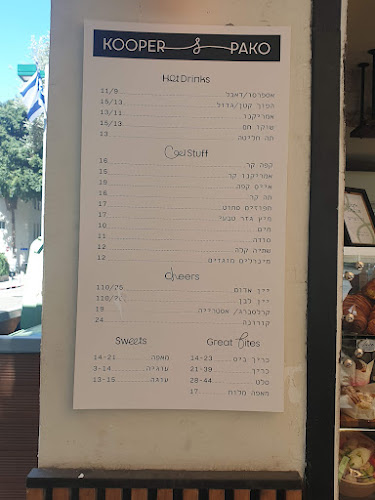 KOOPER & PAKO
Hot Drinks
אספרסו/דאבל 11/9
הפוך קטן/גדול 15/13
אמריקנו 13/11
שוקו חם 15/13
תה חליטה
Cool Stuff
קפה קר 16
אמריקנו קר 16
אייס קפה
תה קר
תפוזים סחוט
מיץ גזר טבעי 17
מים 10
סודה 11
שתיה קלה 12
מיבולים מוגזים 12
Cheers
יין אדום 110/25
יין לבן
קרלסברג/ אסטרייה 19
קורונה 24
Sweets
מאפה 14-21
עוגייה 3-14
עוגה 13-15
Great Bites
כריך ביס 14-23
כריך 21-39
סלט 28-44
מאפה מלוח 17